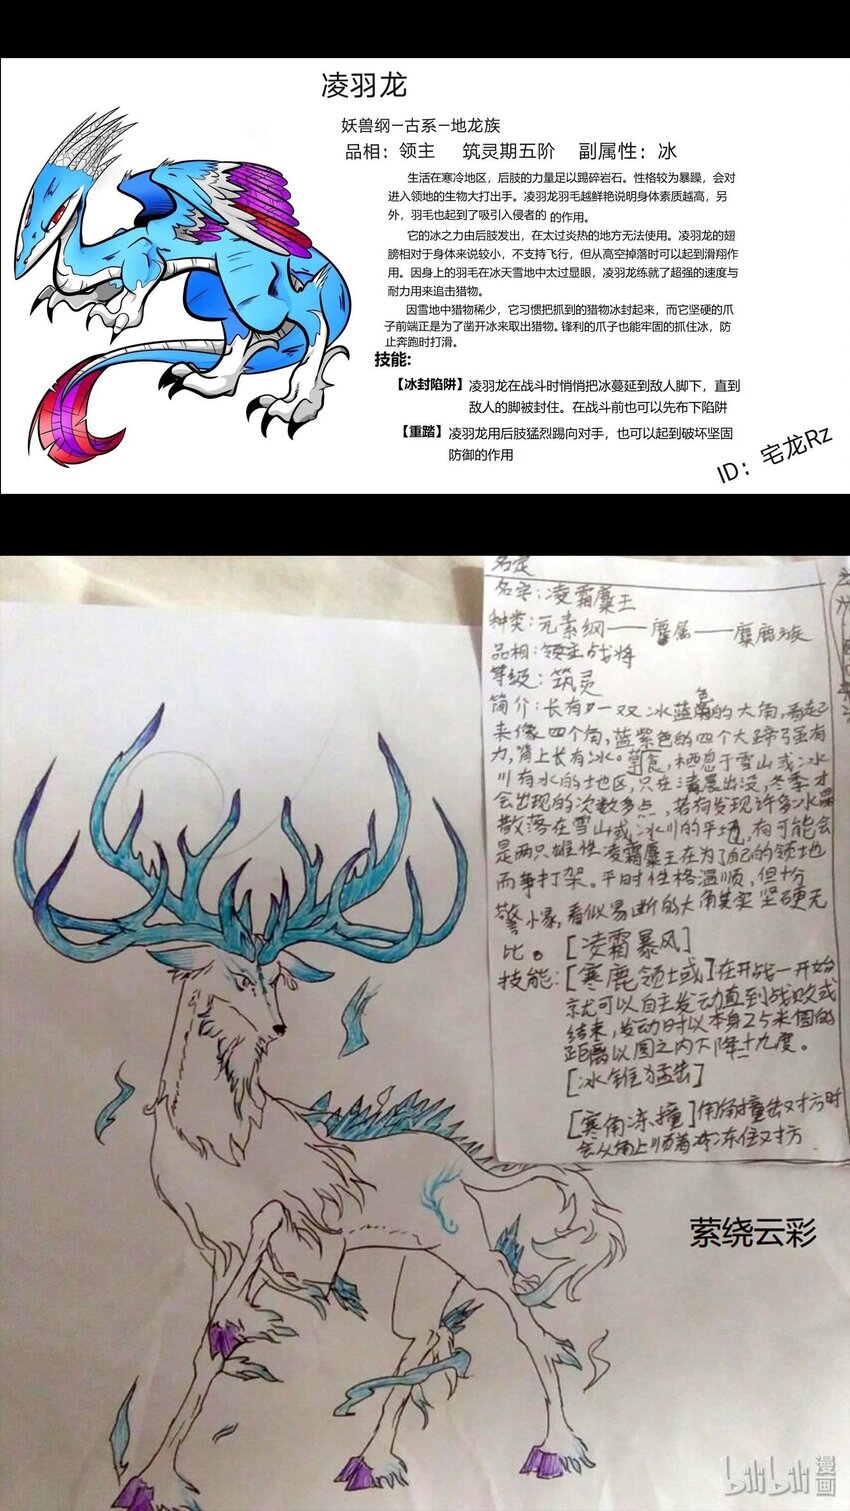 凌羽龙
妖兽纲—古系—地龙族
品相：领主 筑灵期五阶 副属性：冰
生活在寒冷地区，后肢的力量足以踢碎岩石。性格较为暴躁，会对
进入领地的生物大打出手。凌羽龙羽毛越鲜艳说明身体素质越高，另
外，羽毛也起到了吸引入侵者的 的作用。
它的冰之力由后肢发出，在太过炎热的地方无法使用。凌羽龙的翅
膀相对于身体来说较小，不支持飞行，但从高空掉落时可以起到滑翔作
用。因身上的羽毛在冰天雪地中太过显眼，凌羽龙练就了超强的速度与
耐力用来追击猎物。
因雪地中猎物稀少，它习惯把抓到的猎物冰封起来，而它坚硬的爪
子前端正是为了凿开冰来取出猎物。锋利的爪子也能牢固的抓住冰，防
止奔跑时打滑。
技能:
【冰封陷阱】凌羽龙在战斗时悄悄把冰蔓延到敌人脚下，直到
敌人的脚被封住。在战斗前也可以先布下陷阱
【重踏】凌羽龙用后肢猛烈踢向对手，也可以起到破坏坚固
防御的作用
ID：宅龙Rz
名字：凌霜麋王
种类：元素纲——麋属——麋鹿族
品相：领主战将
等级：筑灵
简介：长有一双冰蓝色的大角，看起
来像四个角，蓝紫色的四个大蹄强有
力，背上长有冰。草食，栖息于雪山或冰
川有水的地区，只在清晨出没，冬季才
会出现的次数多点，若有发现许多冰晶
散落在雪山或冰川的平地，有可能会
是两只雄性凌霜麋王在为了自己的领地
而争打架。平时性格温顺，但十分
警惕，看似易断的大角其实坚硬无
比。[凌霜暴风]
技能：[寒鹿领域]在开战一开始
就可以自主发动直到战败或
结束，发动时以本身25米圆的
距离以圆之内下降十九度。
[冰锥猛击]
[寒角冻撞]用角撞击对方时
会从角上顺着冻住对方
萦绕云彩
bilibili漫画